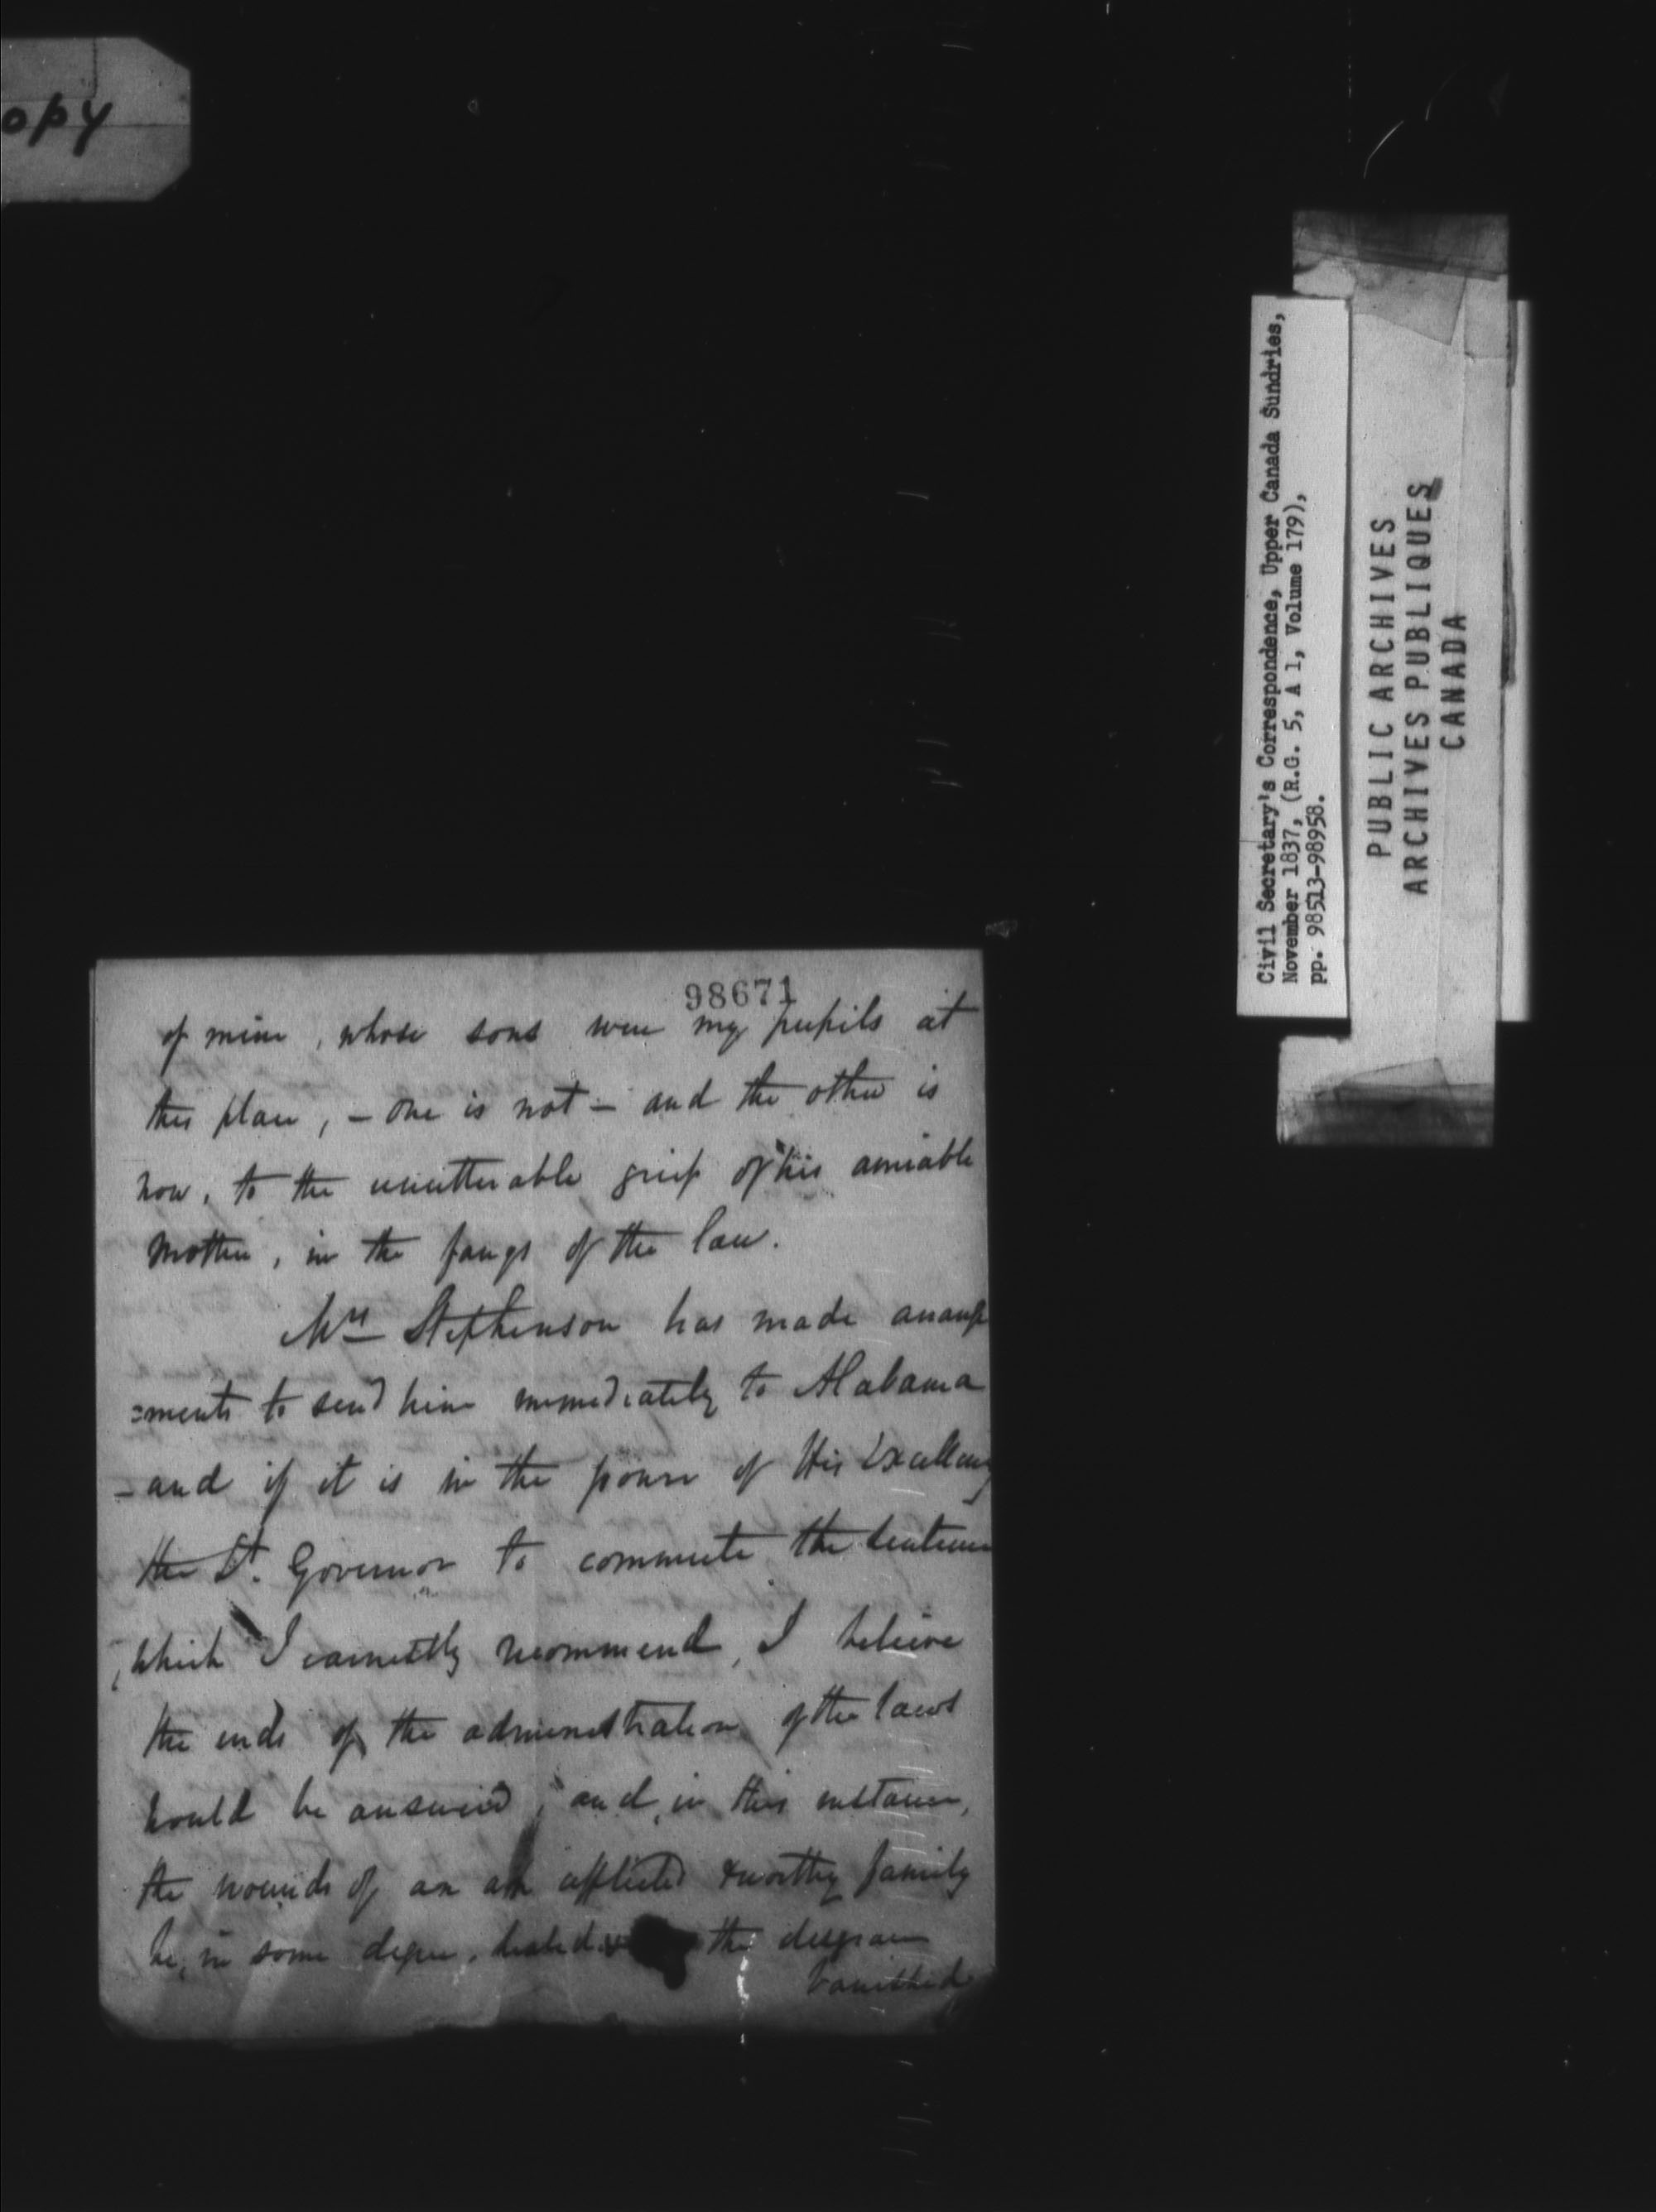 opy
98671
of mine, whose sons were my pupils at
this place, – one is not – and the other is
now, to the unutterable grief of his amiable
Mother, in the fangs of the law.
Mrs Stephenson has made arrange
=ments to send him immediately to Alabama
– and if it is in the power of His Excellency
the Lt. Governor to commute the sentence
, which I earnestly recommend, I believe
the ends of the administration of the laws
would be answered; and, in this instance,
the wounds of an afflicted & worthy family
be, in some degree, healed the disgrace
banished
Civil Secretary's Correspondence, Upper Canada Sundries,
November 1837, (R.G. 5, A 1, Volume 179),
pp. 98513-98958.
PUBLIC ARCHIVES
ARCHIVES PUBLIQUES
CANADA